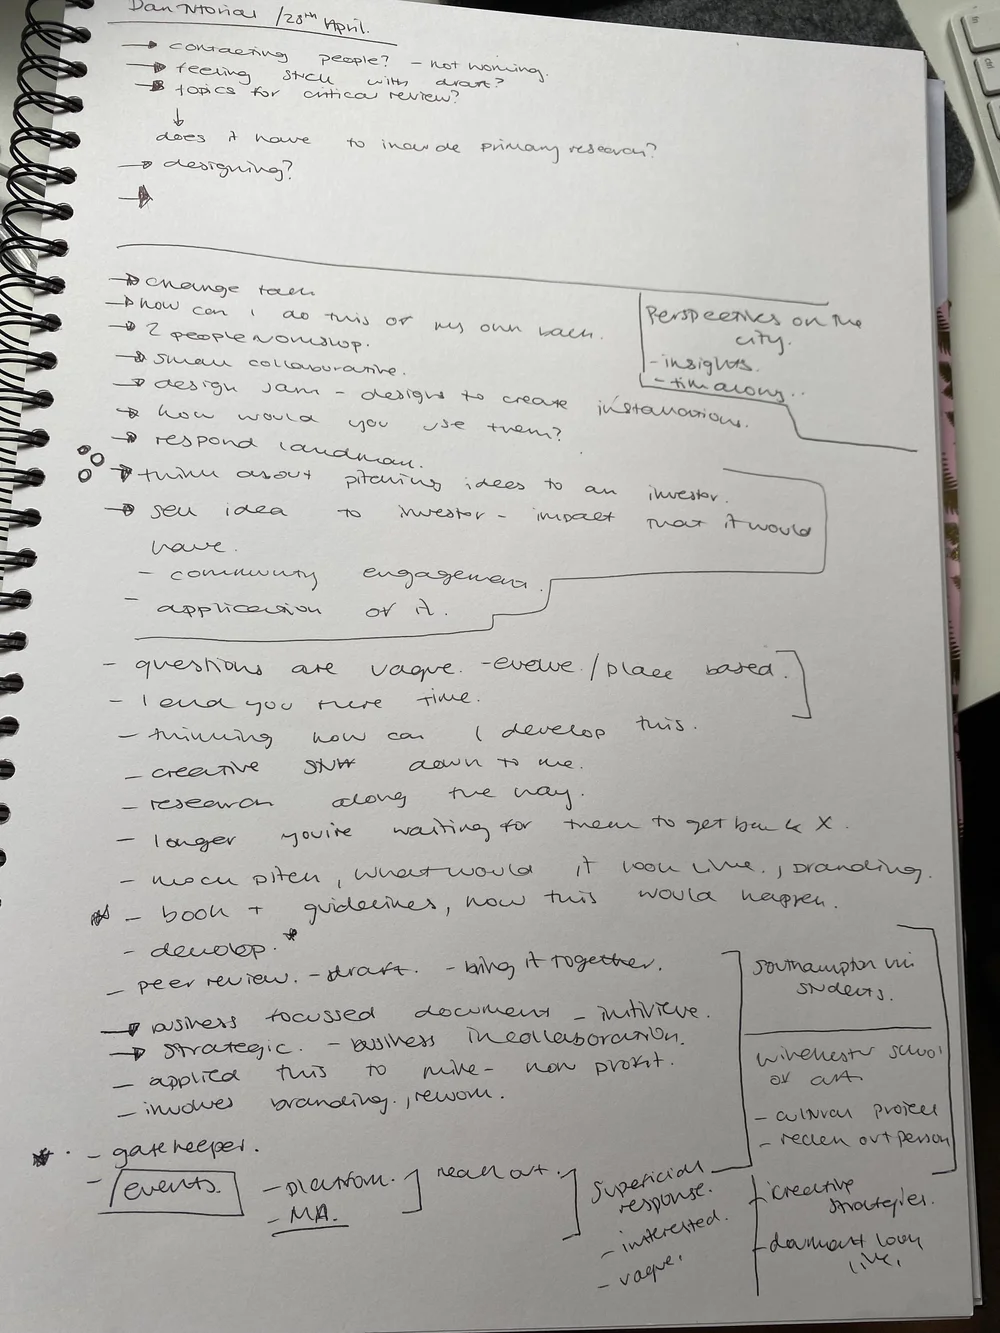 Dan Tutorial / 28th April.
→ contacting people? - not working.
→ feeling stuck with draft?
→ topics for critical review?
↓
does it have to include primary research?
→ designing?
→
→ change
→ how can I do this of my own back.
→ 2 people workshop.
→ small collaborative.
→ design jam - designs to create installations.
→ how would you use them?
→ respond
Perspectives on the
city.
- insights.
→ think about pitching ideas to an investor.
→ sell idea to investor - impact that it would
have.
- community engagement.
- application of it.
- questions are vague. - evolve / place based.
- lend you there time.
- thinking how can I develop this.
- creative stuff down to me.
- research along the way.
- longer you're waiting for them to get back X.
- mock pitch, what would it look like, branding.
- book + guidelines, how this would happen.
- develop. *
- peer review. - draft. - bring it together.
→ business focussed document -
→ strategic. - business in collaboration.
- applied this to mike - non profit.
- involves branding, rework.
Southampton uni
students.
Winchester School
of art
- cultural project
- reach out person
* - gatekeeper.
- events.
- platform.
- MA.
reach out.
superficial
response.
- interested.
- vague.
- creative
strategies.
- look
like.